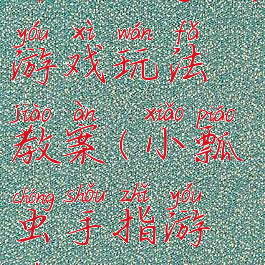 yóu xì wán fǎ
游戏玩法
jiào àn xiǎo piáo
教案(小瓢
chóng shǒu zhǐ yóu
虫手指游